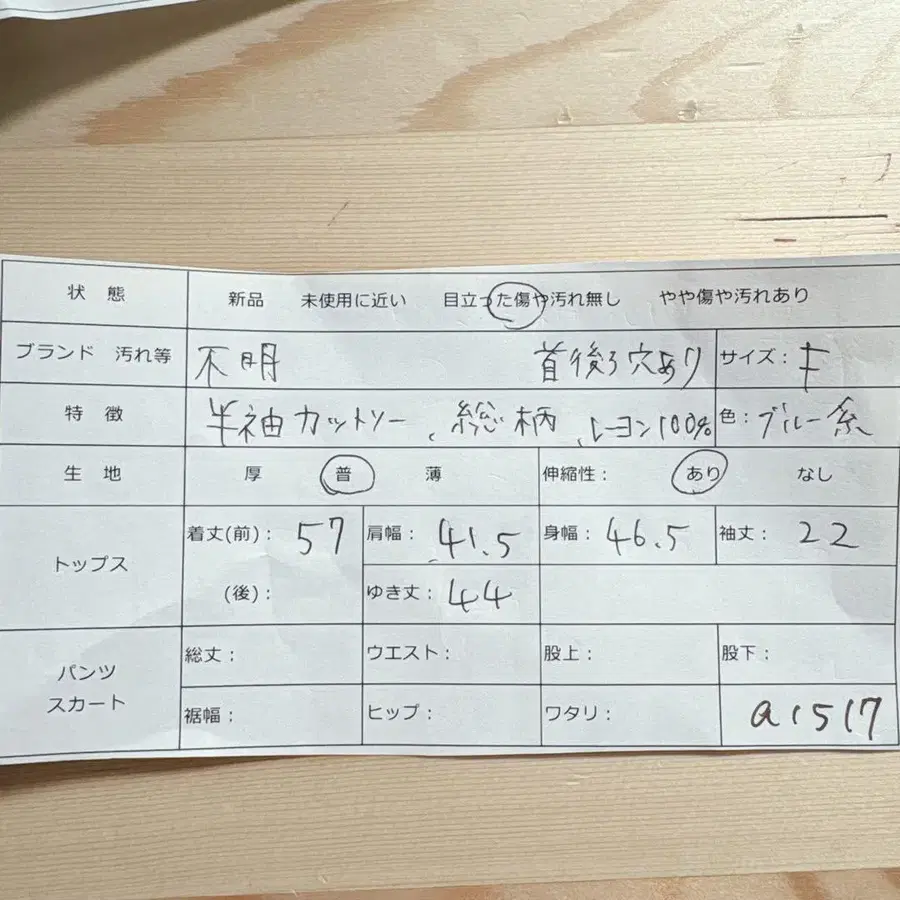 状態 新品 未使用に近い 目立った傷や汚れ無し やや傷や汚れあり
ブランド 汚れ等 不明 首後ろ穴あり サイズ: F
特徴 半袖カットソー、総柄、レーヨン100% 色: ブルー系
生地 厚 普 薄 伸縮性: あり なし
トップス 着丈(前): 57 肩幅: 41.5 身幅: 46.5 袖丈: 22
(後): ゆき丈: 44
パンツ スカート 総丈: ウエスト: 股上: 股下:
裾幅: ヒップ: ワタリ: a1517